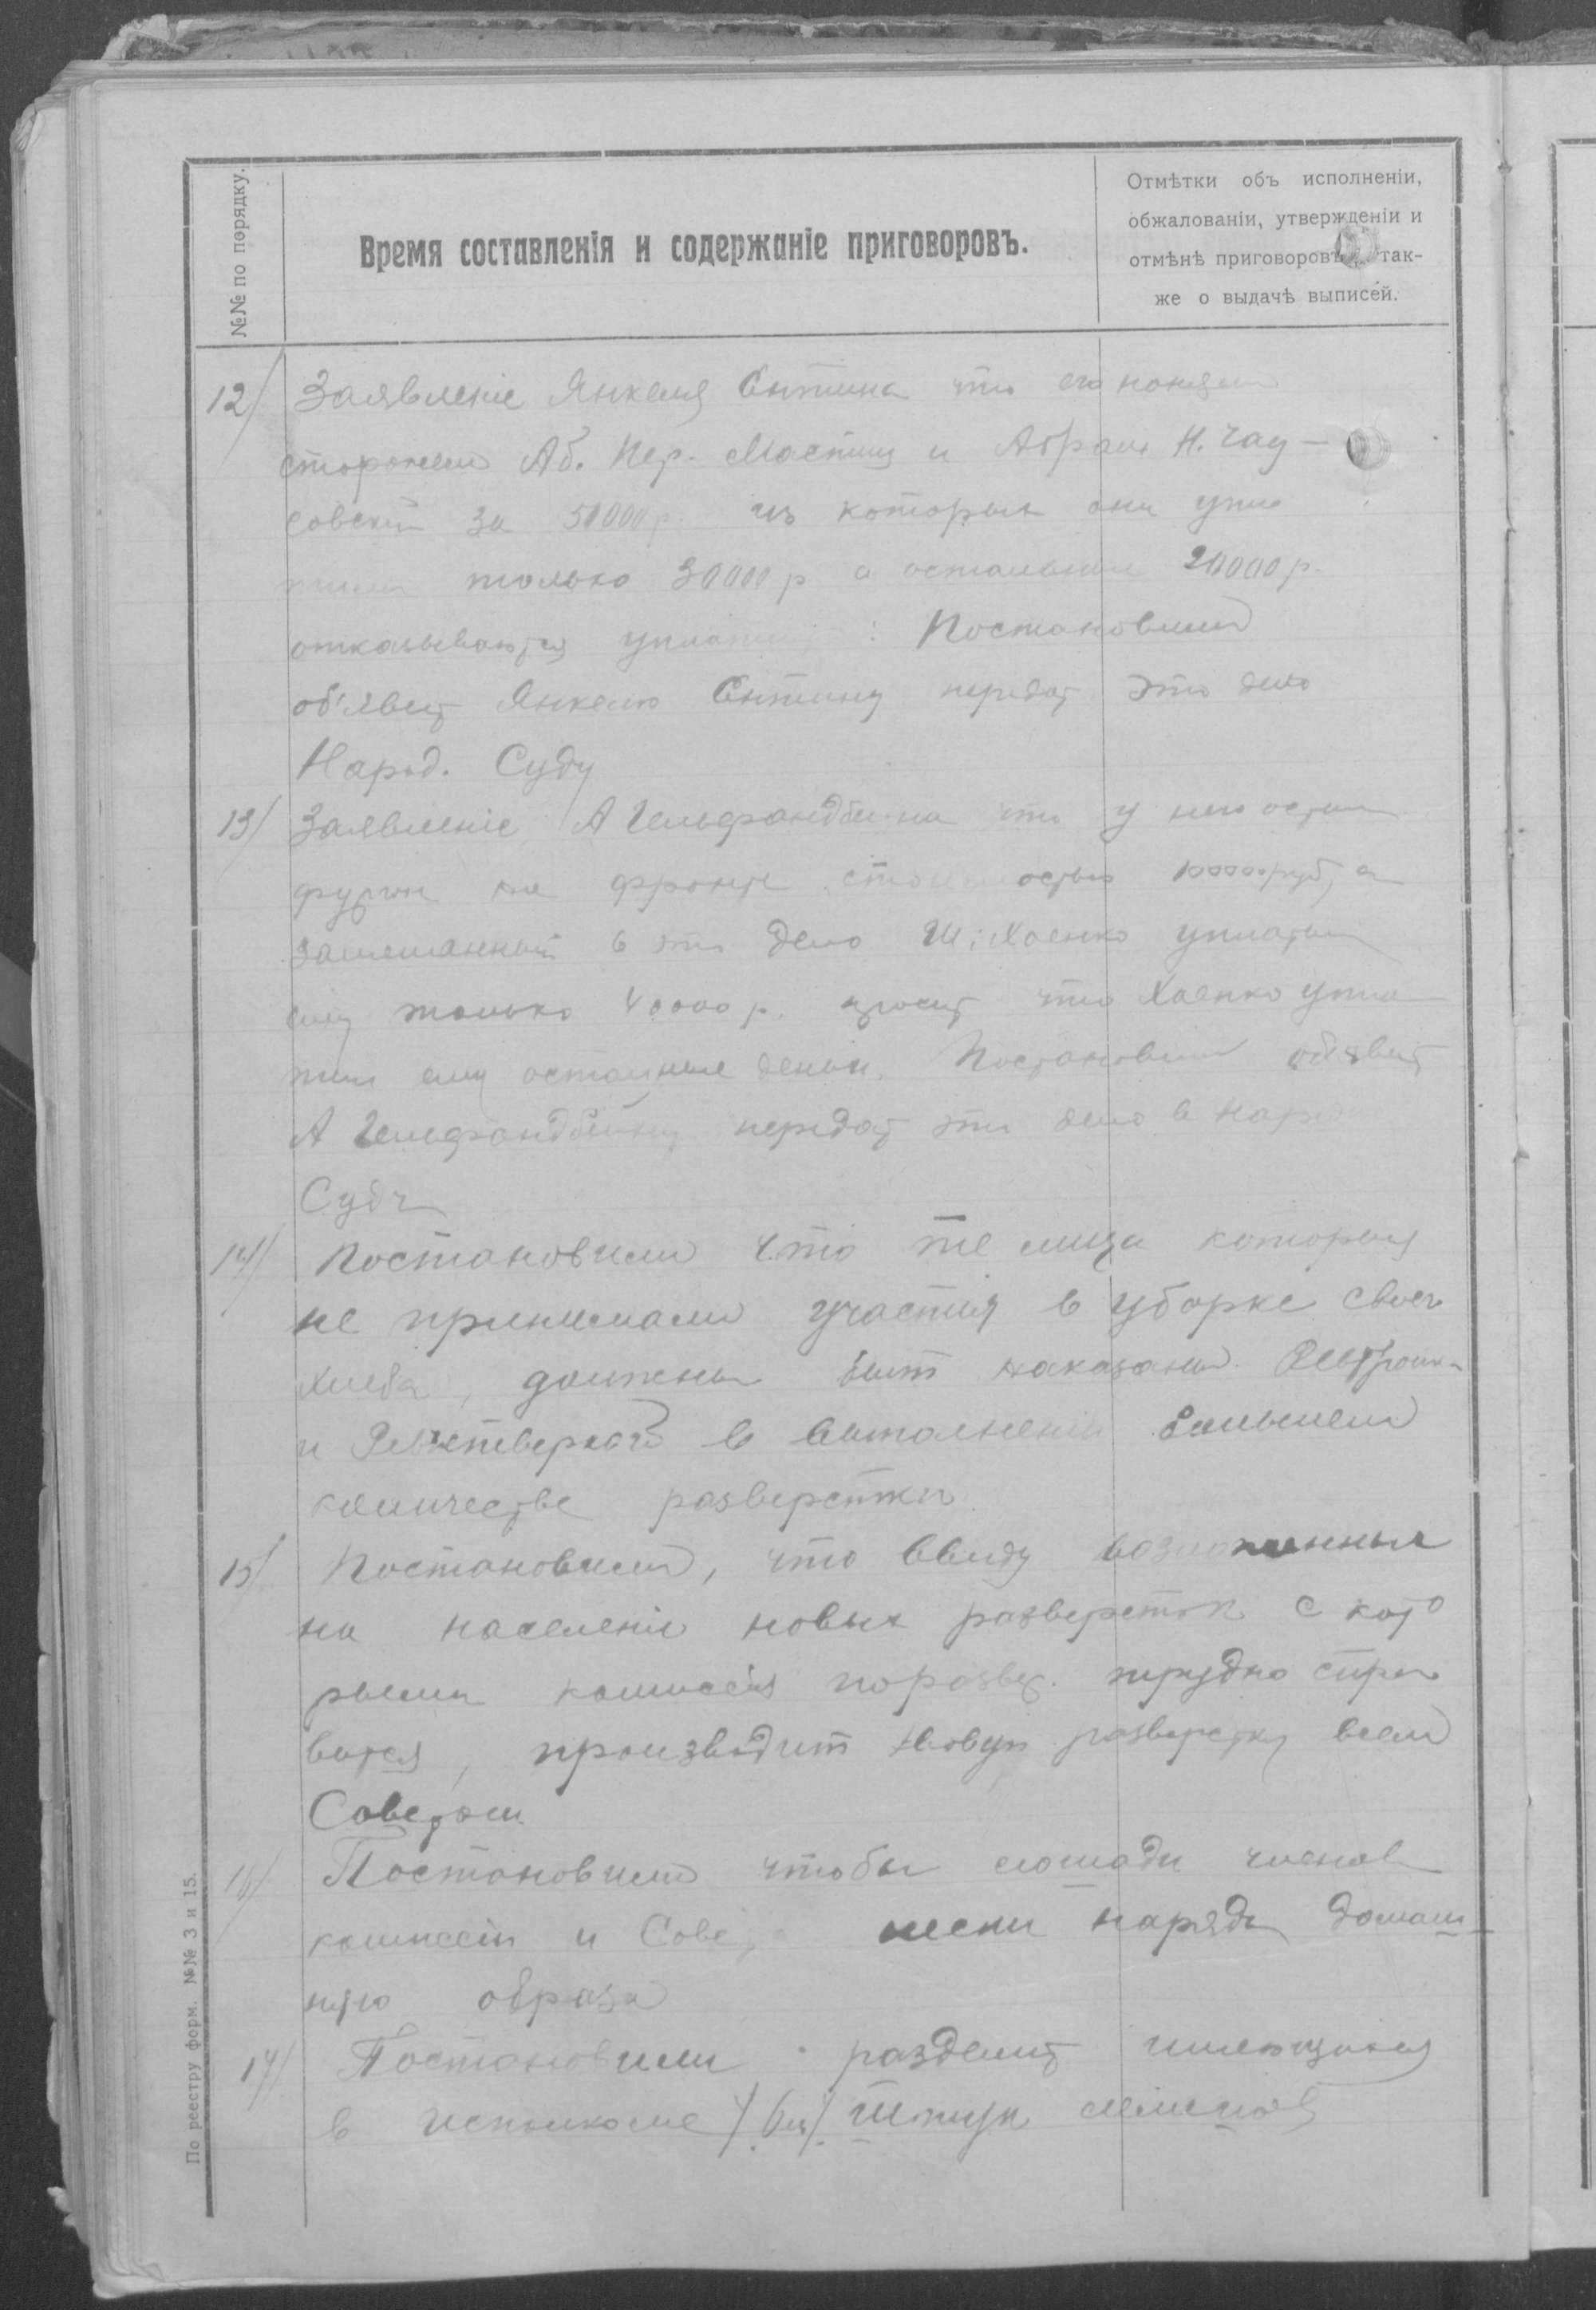 №№ по порядку.
Время составленія и содержаніе приговоровъ.
Отмѣтки объ исполненіи,
обжалованіи, утвержденіи и
отмѣнѣ приговоровъ так-
же о выдачѣ выписей.
12/ Заявленіе Янкеля Ентина что его
сторожем Аб. Пер. и Абрам Н. Чад-
совский за 50000 р. из которых они упла
тили только 30000 р а остальные 20000 р.
отказываются уплатить: Постановили
об'явит Янкелю Ентину передат это дело
Народ. Суду
13/ Заявленіе А Гельфандбейна что у него остал
фургон на фронте стоимостью 100000 руб, а
замешанный в это дело Ш. Хаенко уплатил
ему только 40000 р. просит что Хаенко упла
тил ему остальные деньги. Постановили об'явит
А Гельфандбейну передат это дело в Народ
Суд
14/ Постановили что те лица которыя
не принимали участия в уборке своего
хлеба, должны быт наказаны.
и в выполнении большем
количестве разверстки
15/ Постановили, что ввиду возложенных
на населеніе новых разверсток с кото
рыми комиссія по развер. трудно спра
вится, производит новую разверстку всем
Советом
16/ Постановили чтобы лошади членов
комиссіи и Совет. несли наряд
образа
17/ Постановили разделит имеющихся
в исполкоме штук
По реестру форм. №№ 3 и 15.